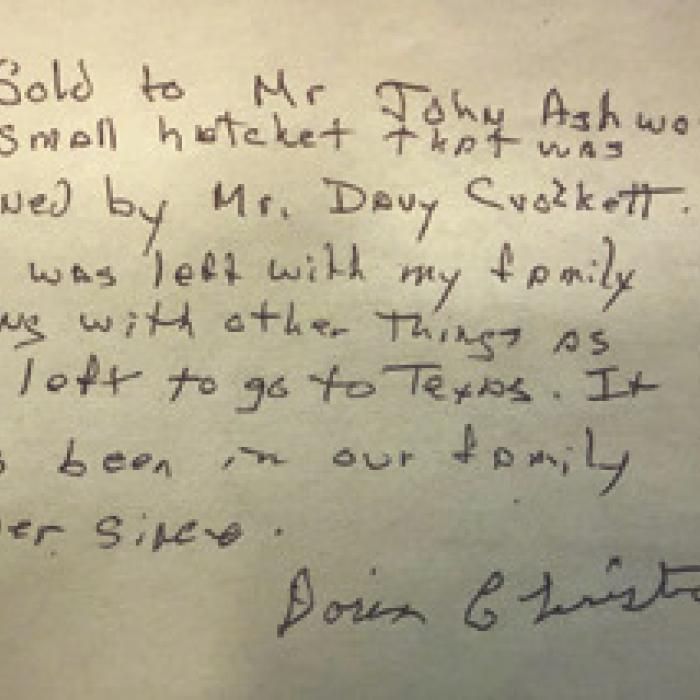 Sold to Mr John Ashwo
small hatchet that was
ned by Mr. Davy Crockett.
was left with my family
ng with other things as
left to go to Texas. It
s been in our family
er since.
Doris Christ